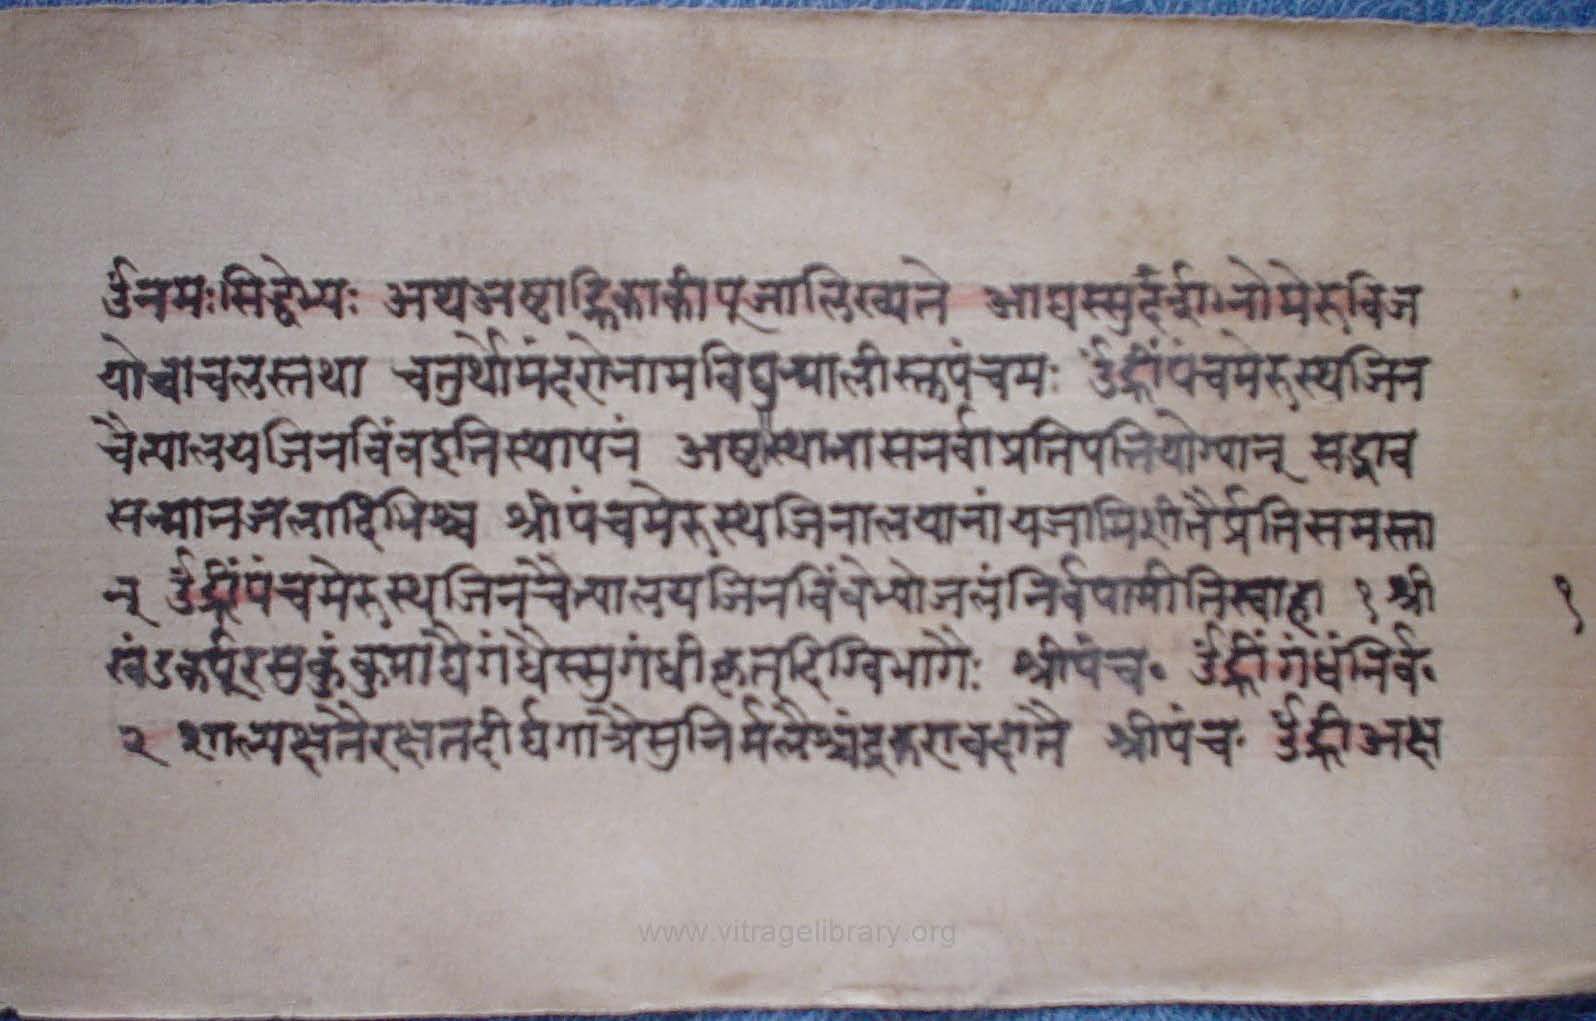 ॐनमःसिद्धेभ्यः अथअष्टाह्निकाकीपूजालिख्यते आद्यस्सुदर्शनोमेरुविज
योचाचलस्तथा चतुर्थोमंदरोनामविद्युन्मालीस्तपंचमः ॐह्रींपंचमेरुस्थजिन
चैत्यालयजिनबिंबइतिस्थापनं प्रतिपत्तियोग्यान् सद्भाव
सन्मानजलादिभिश्च श्रीपंचमेरुस्थजिनालयानांयजामि
न् ॐह्रींपंचमेरुस्थजिनचैत्यालयजिनबिंबेभ्योजलंनिर्वपामीतिस्वाहा १ श्री
१
खंडकर्पूरसुकुंकुमाद्यैगंधैस्सुगंधीकृतदिग्विभागैः श्रीपंच॰ ॐह्रींगंधंनिर्व॰
२ शाल्यक्षतैरक्षतदीर्घगात्रैसुनिर्मलैश्चंद्रकरावदातै श्रीपंच॰ ॐह्रीअक्ष
www.vitragelibrary.org